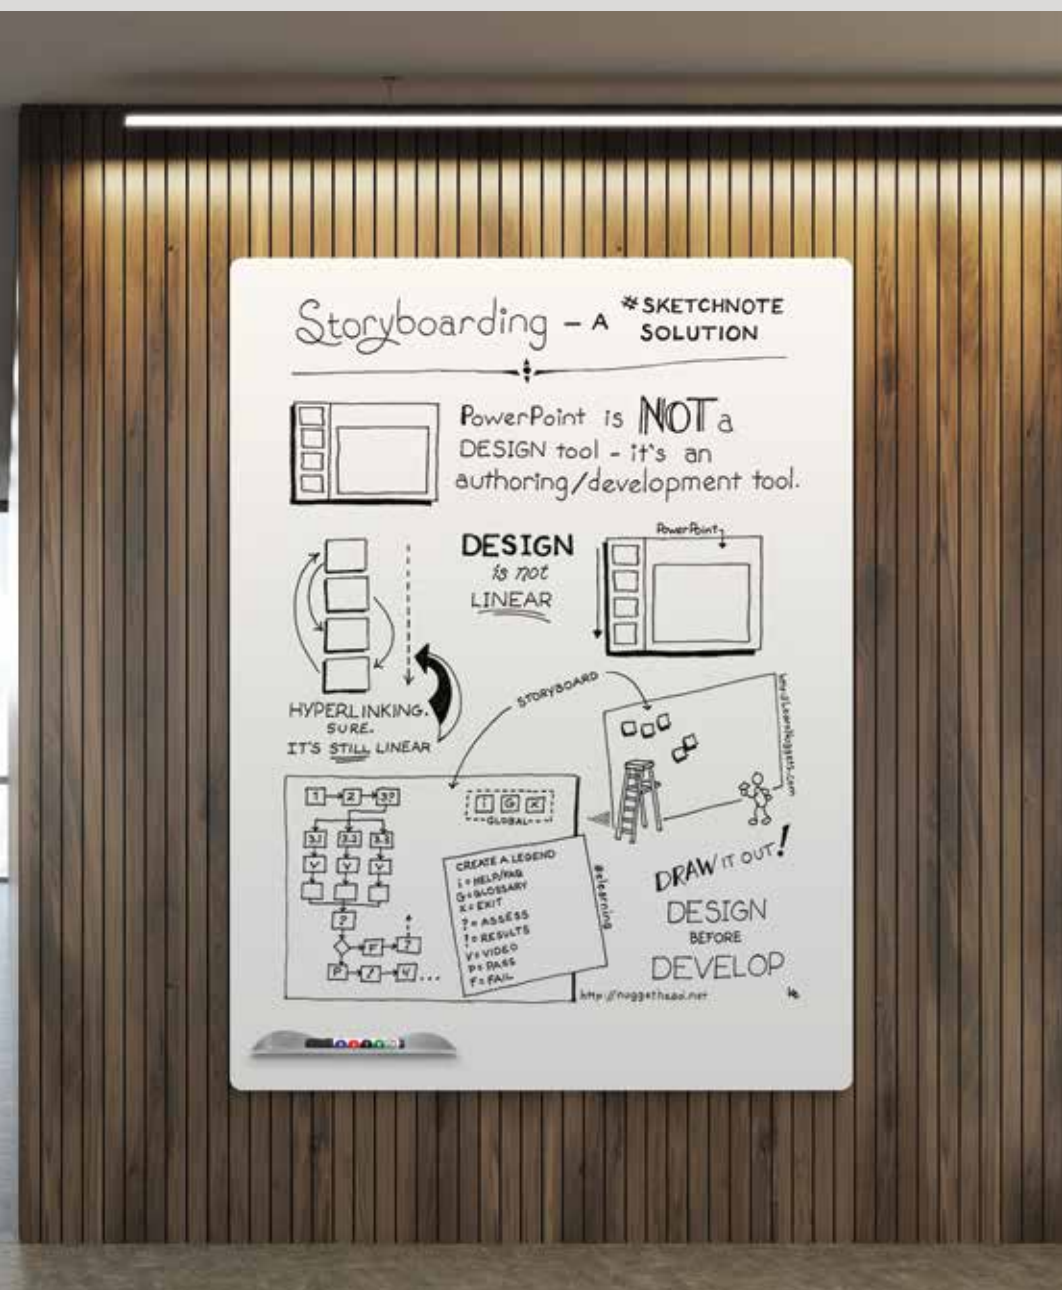 Storyboarding - A #SKETCHNOTE
SOLUTION
PowerPoint is NOT a
DESIGN tool - it's an
authoring/development tool.
DESIGN
is not
LINEAR
PowerPoint
HYPERLINKING.
SURE.
IT'S STILL LINEAR
STORYBOARD
http://LearnNuggets.com
1 2 3?
i G X
GLOBAL
3.1 3.2 3.3
V V V
?
F ?
P ! 4 ...
CREATE A LEGEND
i = HELP/FAQ
G = GLOSSARY
X = EXIT
? = ASSESS
! = RESULTS
V = VIDEO
P = PASS
F = FAIL
#elearning
DRAW IT OUT!
DESIGN
BEFORE
DEVELOP